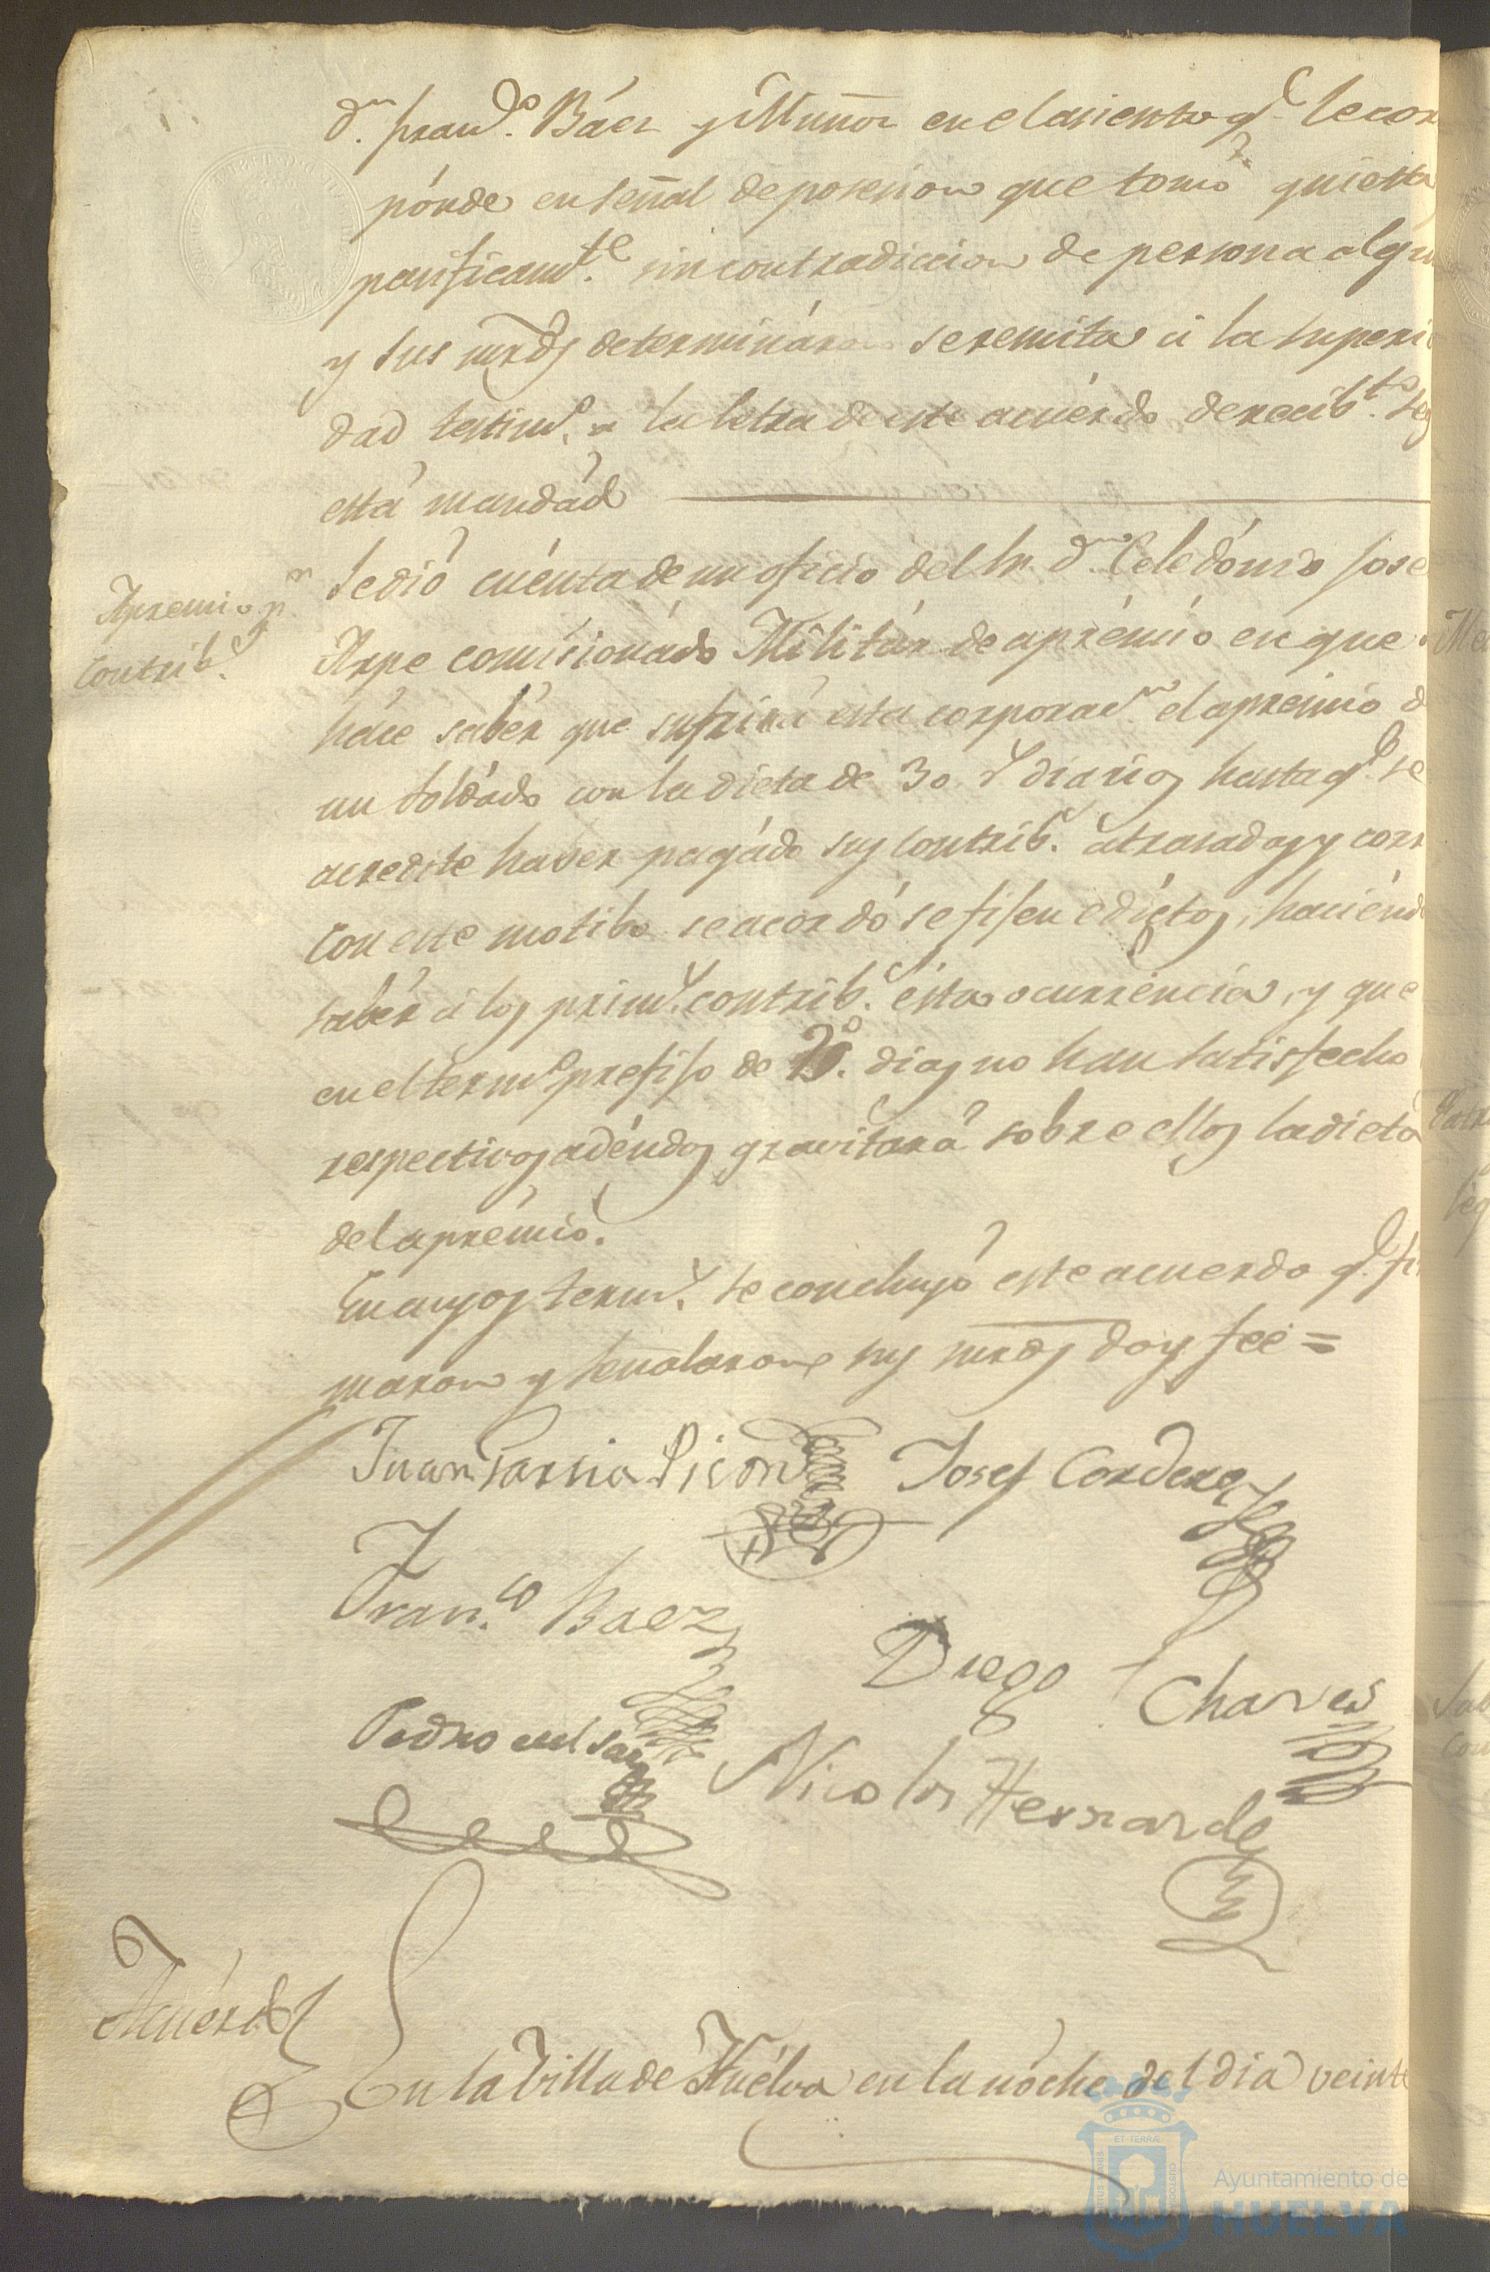 dn. Franco. Báez y Muñoz en el asiento qe. le cor
pónde en señal de posesion que tomó quieta
pasificamte. sin contradiccion de persona algu
y sus mrds determináron se remita á la superi
dad testimo. a la letra de este acuérdo de recibto. seg
está mandádo
Apremio pr.
Contribs.
Se dió cuénta de un oficio del Sr. dn. Celedónio Jose
Arpe comisionádo Militár de aprémio en que
háce sabér que sufrirá esta corporacn. el apremio d
un soldádo con la dieta de 30 rs diarios hasta qe. se
acredite haber pagádo sus contribs. atrasadas y corr
Con este motibo se acordó se fijen edictos, haciénd
sabér á los prims. contribs. ésta ocurréncia, y que
en el termo. prefijo de dias no han satisfecho
respectivos adéudos gravitará sobre ellos la diéta
del aprémio.
En cuyos terms. se concluyó este acuerdo qe. fir
maron y señalaron sus mrds doy fee =
Juan Garcia Picon Josef Cordero
Franco. Baez
Diego Chaves
Pedro del
Nicolas Hernandez
Acuérdo
En la Villa de Huélva en la nóche del dia veinte
ET TERRÆ
Ayuntamiento de
HUELVA